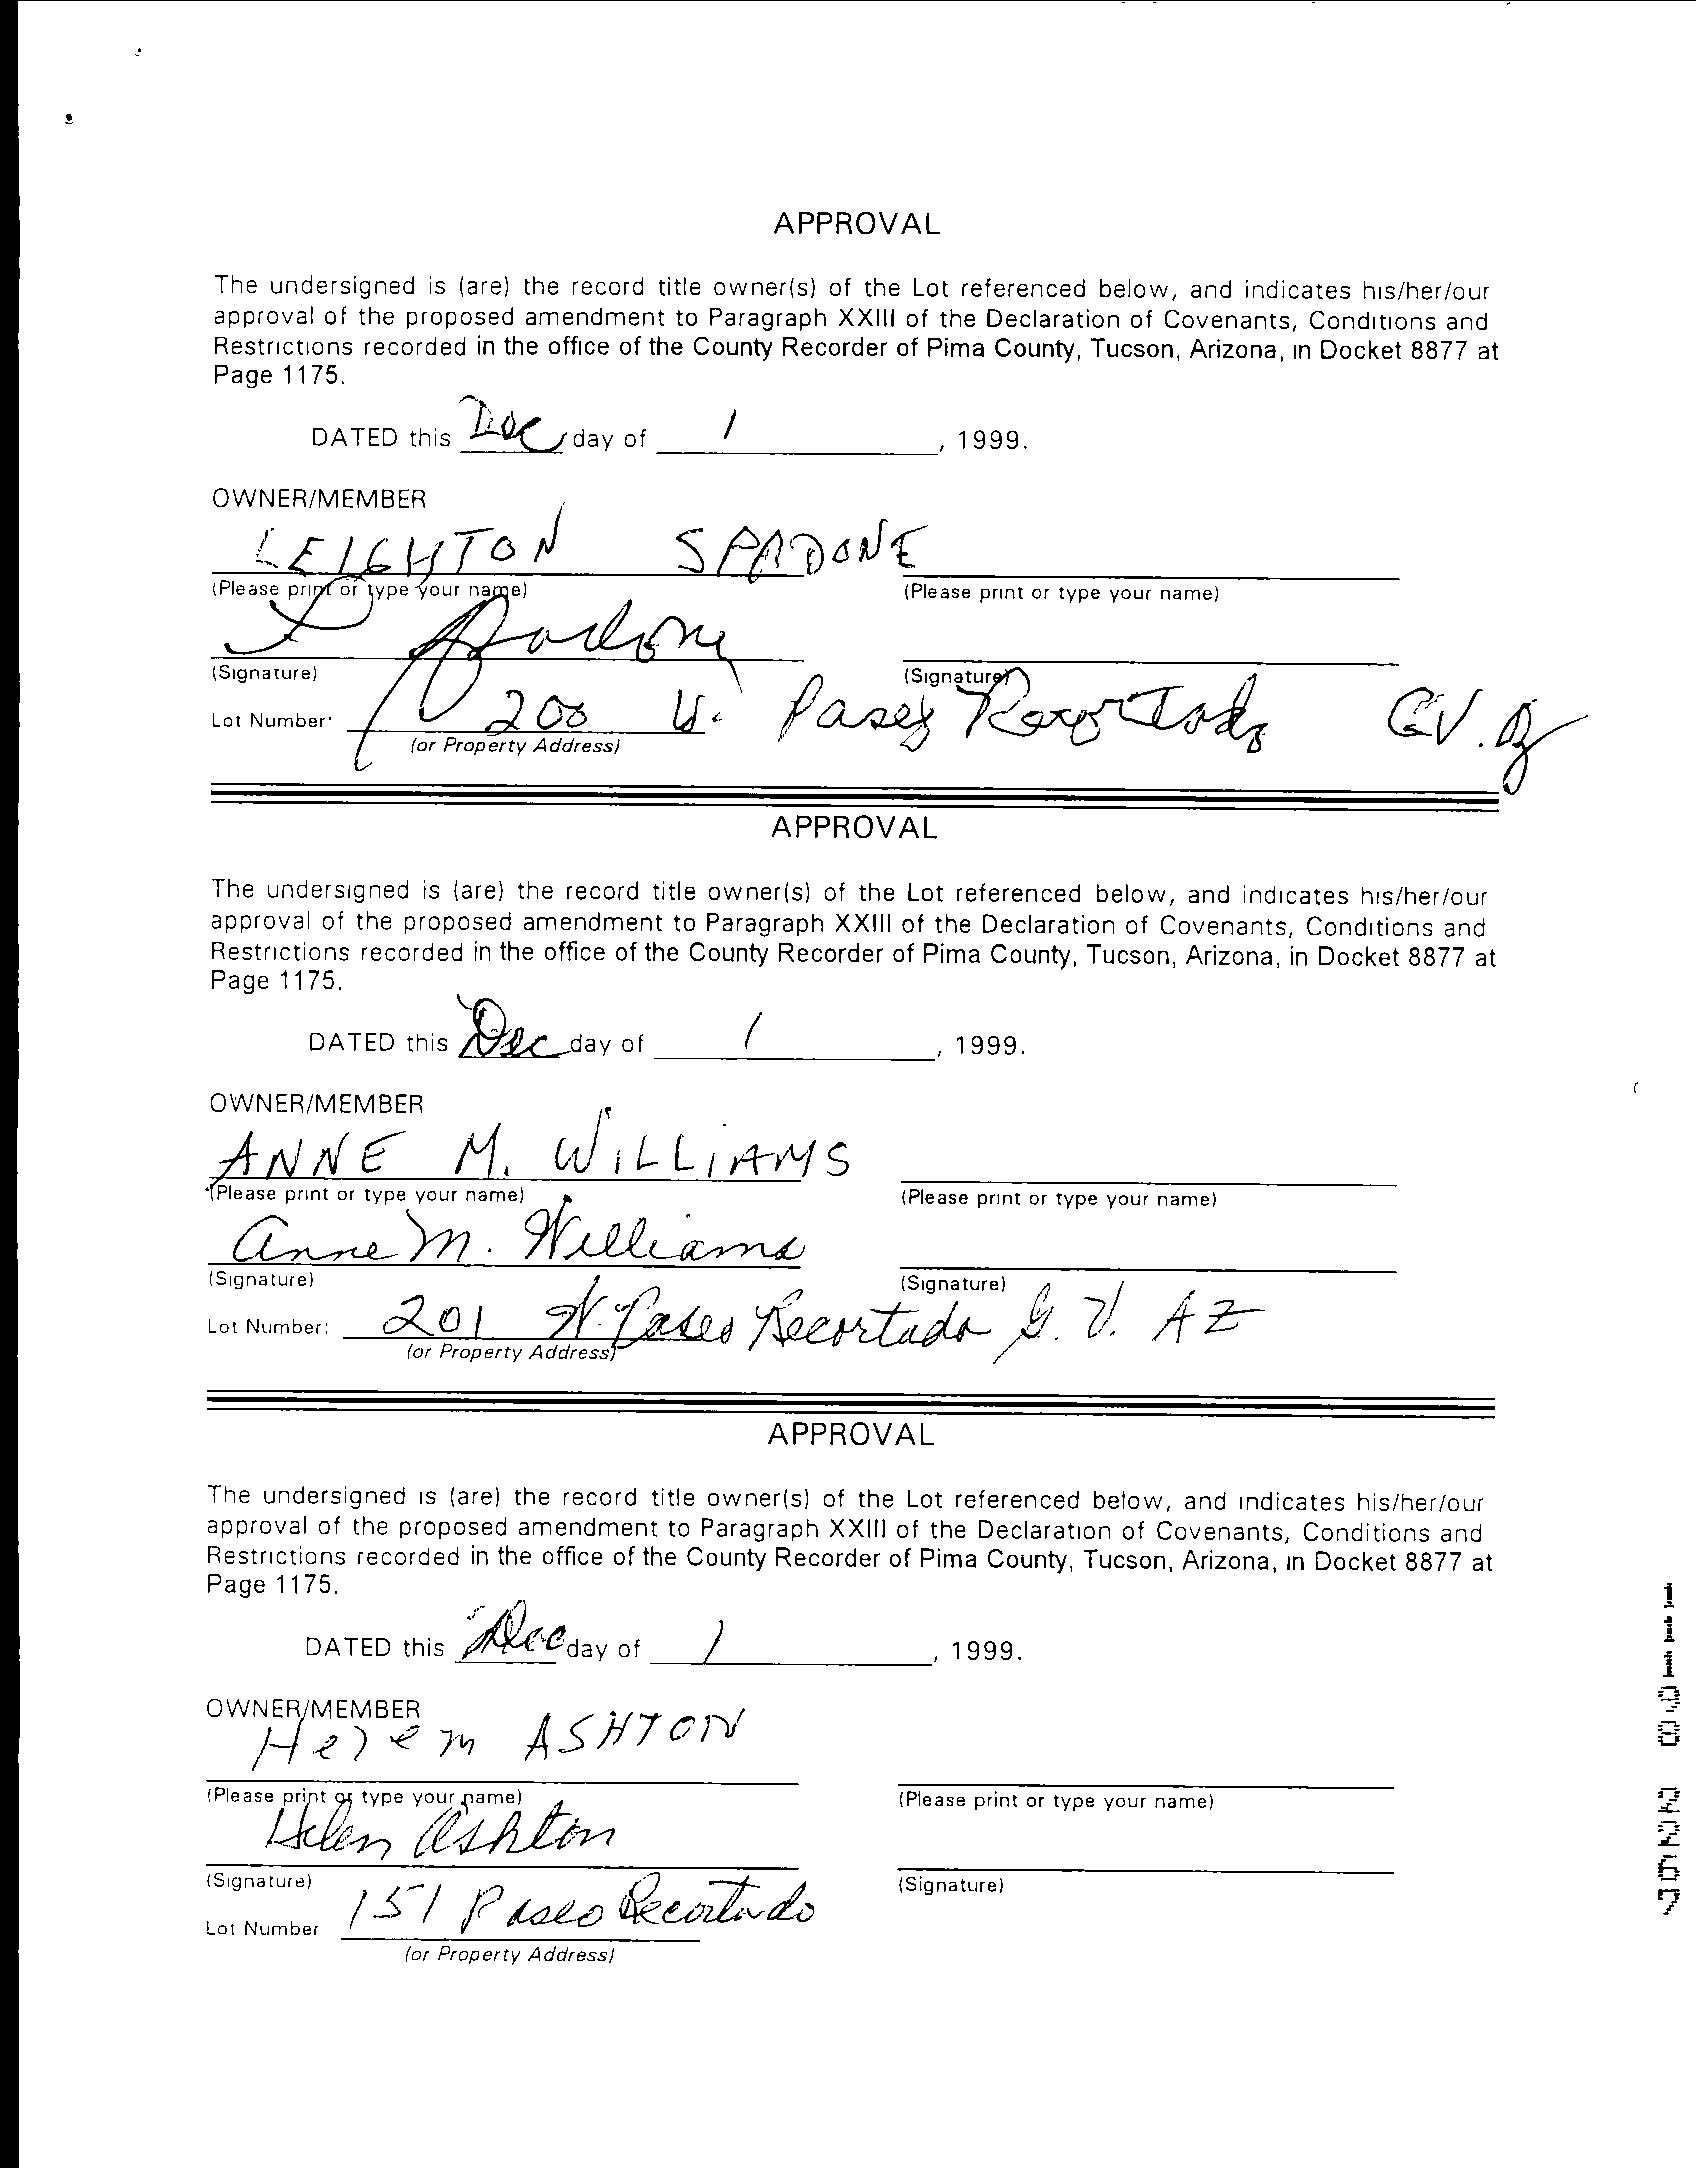 APPROVAL
The undersigned is (are) the record title owner(s) of the Lot referenced below, and indicates his/her/our
approval of the proposed amendment to Paragraph XXIII of the Declaration of Covenants, Conditions and
Restrictions recorded in the office of the County Recorder of Pima County, Tucson, Arizona, in Docket 8877 at
Page 1175.
DATED this Dec day of 1, 1999.
OWNER/MEMBER
LEIGHTON SPADONE
(Please print or type your name) (Please print or type your name)
L Spadone
(Signature) (Signature)
Lot Number: 200 W. Paseo Recortado GV. Az
(or Property Address)
APPROVAL
The undersigned is (are) the record title owner(s) of the Lot referenced below, and indicates his/her/our
approval of the proposed amendment to Paragraph XXIII of the Declaration of Covenants, Conditions and
Restrictions recorded in the office of the County Recorder of Pima County, Tucson, Arizona, in Docket 8877 at
Page 1175.
DATED this Dec day of 1, 1999.
OWNER/MEMBER
ANNE M. WILLIAMS
(Please print or type your name) (Please print or type your name)
Anne M. Williams
(Signature) (Signature)
Lot Number: 201 W. Paseo Recortado G. V. AZ
(or Property Address)
APPROVAL
The undersigned is (are) the record title owner(s) of the Lot referenced below, and indicates his/her/our
approval of the proposed amendment to Paragraph XXIII of the Declaration of Covenants, Conditions and
Restrictions recorded in the office of the County Recorder of Pima County, Tucson, Arizona, in Docket 8877 at
Page 1175.
DATED this Dec day of 1, 1999.
OWNER/MEMBER
Helen ASHTON
(Please print or type your name) (Please print or type your name)
Helen Ashton
(Signature) (Signature)
Lot Number 151 Paseo Recortado
(or Property Address)